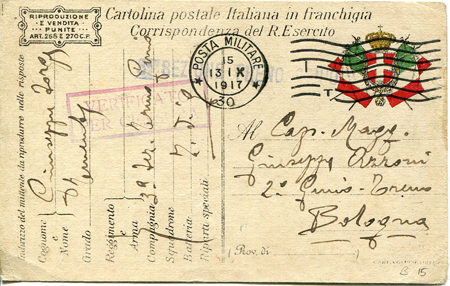 RIPRODUZIONE
E VENDITA
PUNITE
ART. 265 E 270 C.P.
Cartolina postale Italiana in franchigia
Corrispondenza del R. Esercito
POSTA MILITARE
15
13 IX
1917
30
VERIFICATO
Al Cap. Magg.
Giuseppe Azzoni
2° Genio-Treno
Bologna
(Prov. di )
Indirizzo del mittente da riprodurre nelle risposte
Cognome e Nome Giuseppe
Grado
Reggimento e Arma
Compagnia 3ª
Squadrone
Batteria
Riparti speciali
B 15